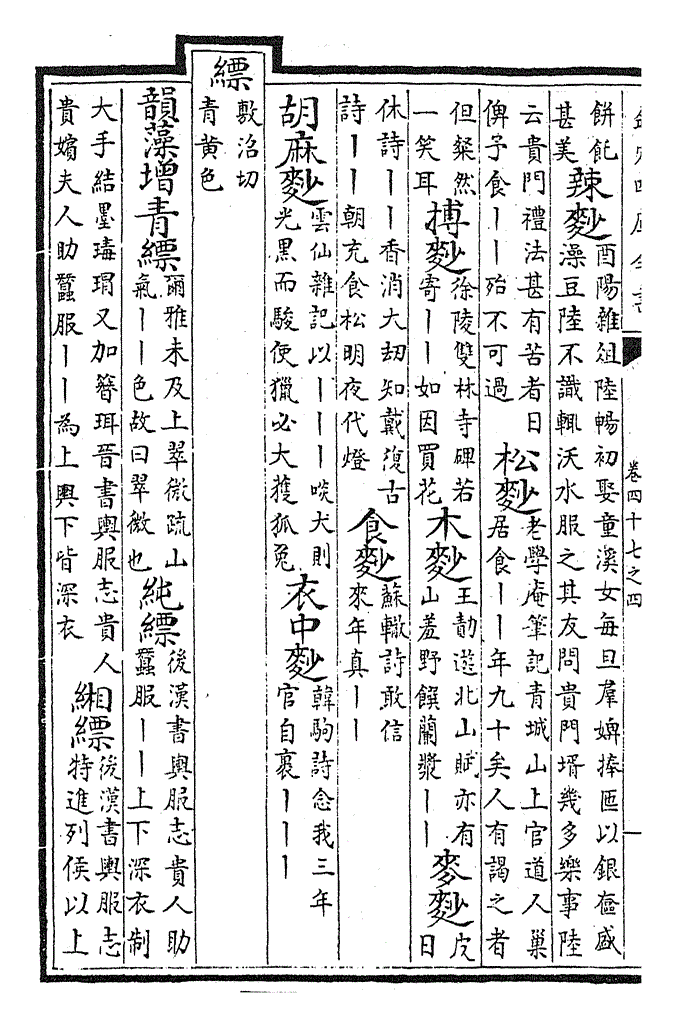 欽定四庫全書 卷四十七之四 一
餅飥甚美 辣麨 酉陽雜俎陸暢初娶童溪女每旦羣婢捧匜以銀奩盛澡豆陸不識輒沃水服之其友問貴門壻幾多樂事陸
云貴門禮法甚有苦者日俾予食丨丨殆不可過 松麨 老學庵筆記青城山上官道人巢居食丨丨年九十矣人有謁之者
但粲然一笑耳 摶麨 徐陵雙林寺碑若寄丨丨如因買花 木麨 王勃遊北山賦亦有山羞野饌蘭漿丨丨 麥麨 皮日
休詩丨丨香消大劫知戴復古詩丨丨朝充食松明夜代燈 食麨 蘇轍詩敢信來年真丨丨
胡麻麨 雲仙雜記以丨丨丨啖犬則光黑而駿使獵必大獲狐兔 衣中麨 韓駒詩念我三年官自裹丨丨丨
縹 敷沼切青黃色
韻藻增青縹 爾雅未及上翠微疏山氣丨丨色故曰翠微也 純縹 後漢書輿服志貴人助蠶服丨丨上下深衣制
大手結墨瑇瑁又加簪珥晉書輿服志貴人貴嬪夫人助蠶服丨丨為上輿下皆深衣 緗縹 後漢書輿服志特進列侯以上